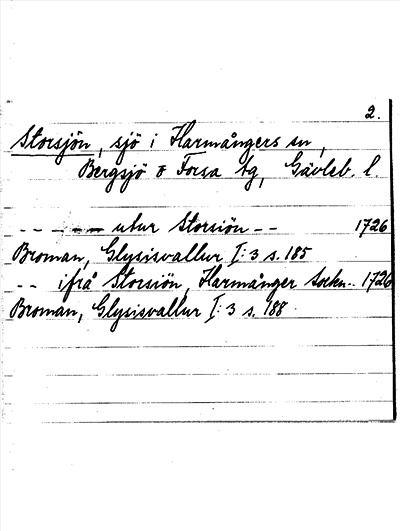 2.
Storsjön, sjö i Harmångers sn,
Bergsjö o Forsa tg, Gävleb. l.
- - - - - utur Storsiön - - 1726
Broman, Glysisvallur I:3 s. 185
- - ifrå Storsiön, Harmånger Sockn.. 1726
Broman, Glysisvallur I:3 s. 188